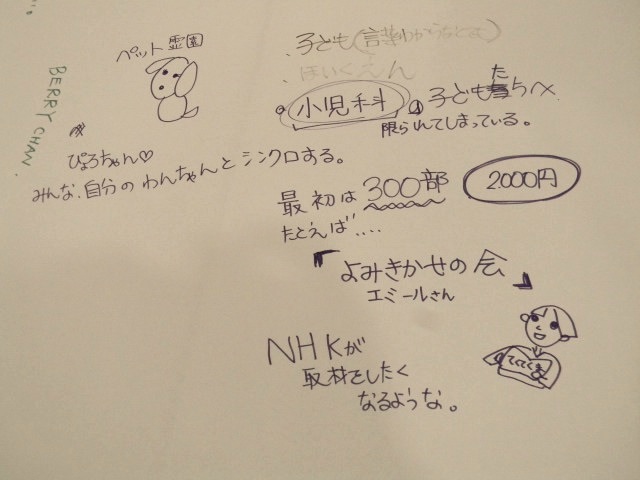 BERRY CHAN.
ペット霊園
ぴょろちゃん♡
みんな、自分のわんちゃんとシンクロする。
・子ども(言葉わからなくても)
・ほいくえん
小児科 子どもたちへ
限られてしまっている。
最初は300部 2000円
たとえば‥‥
『よみきかせの会』
エミールさん
てくてく
NHKが
取材をしたく
なるような。